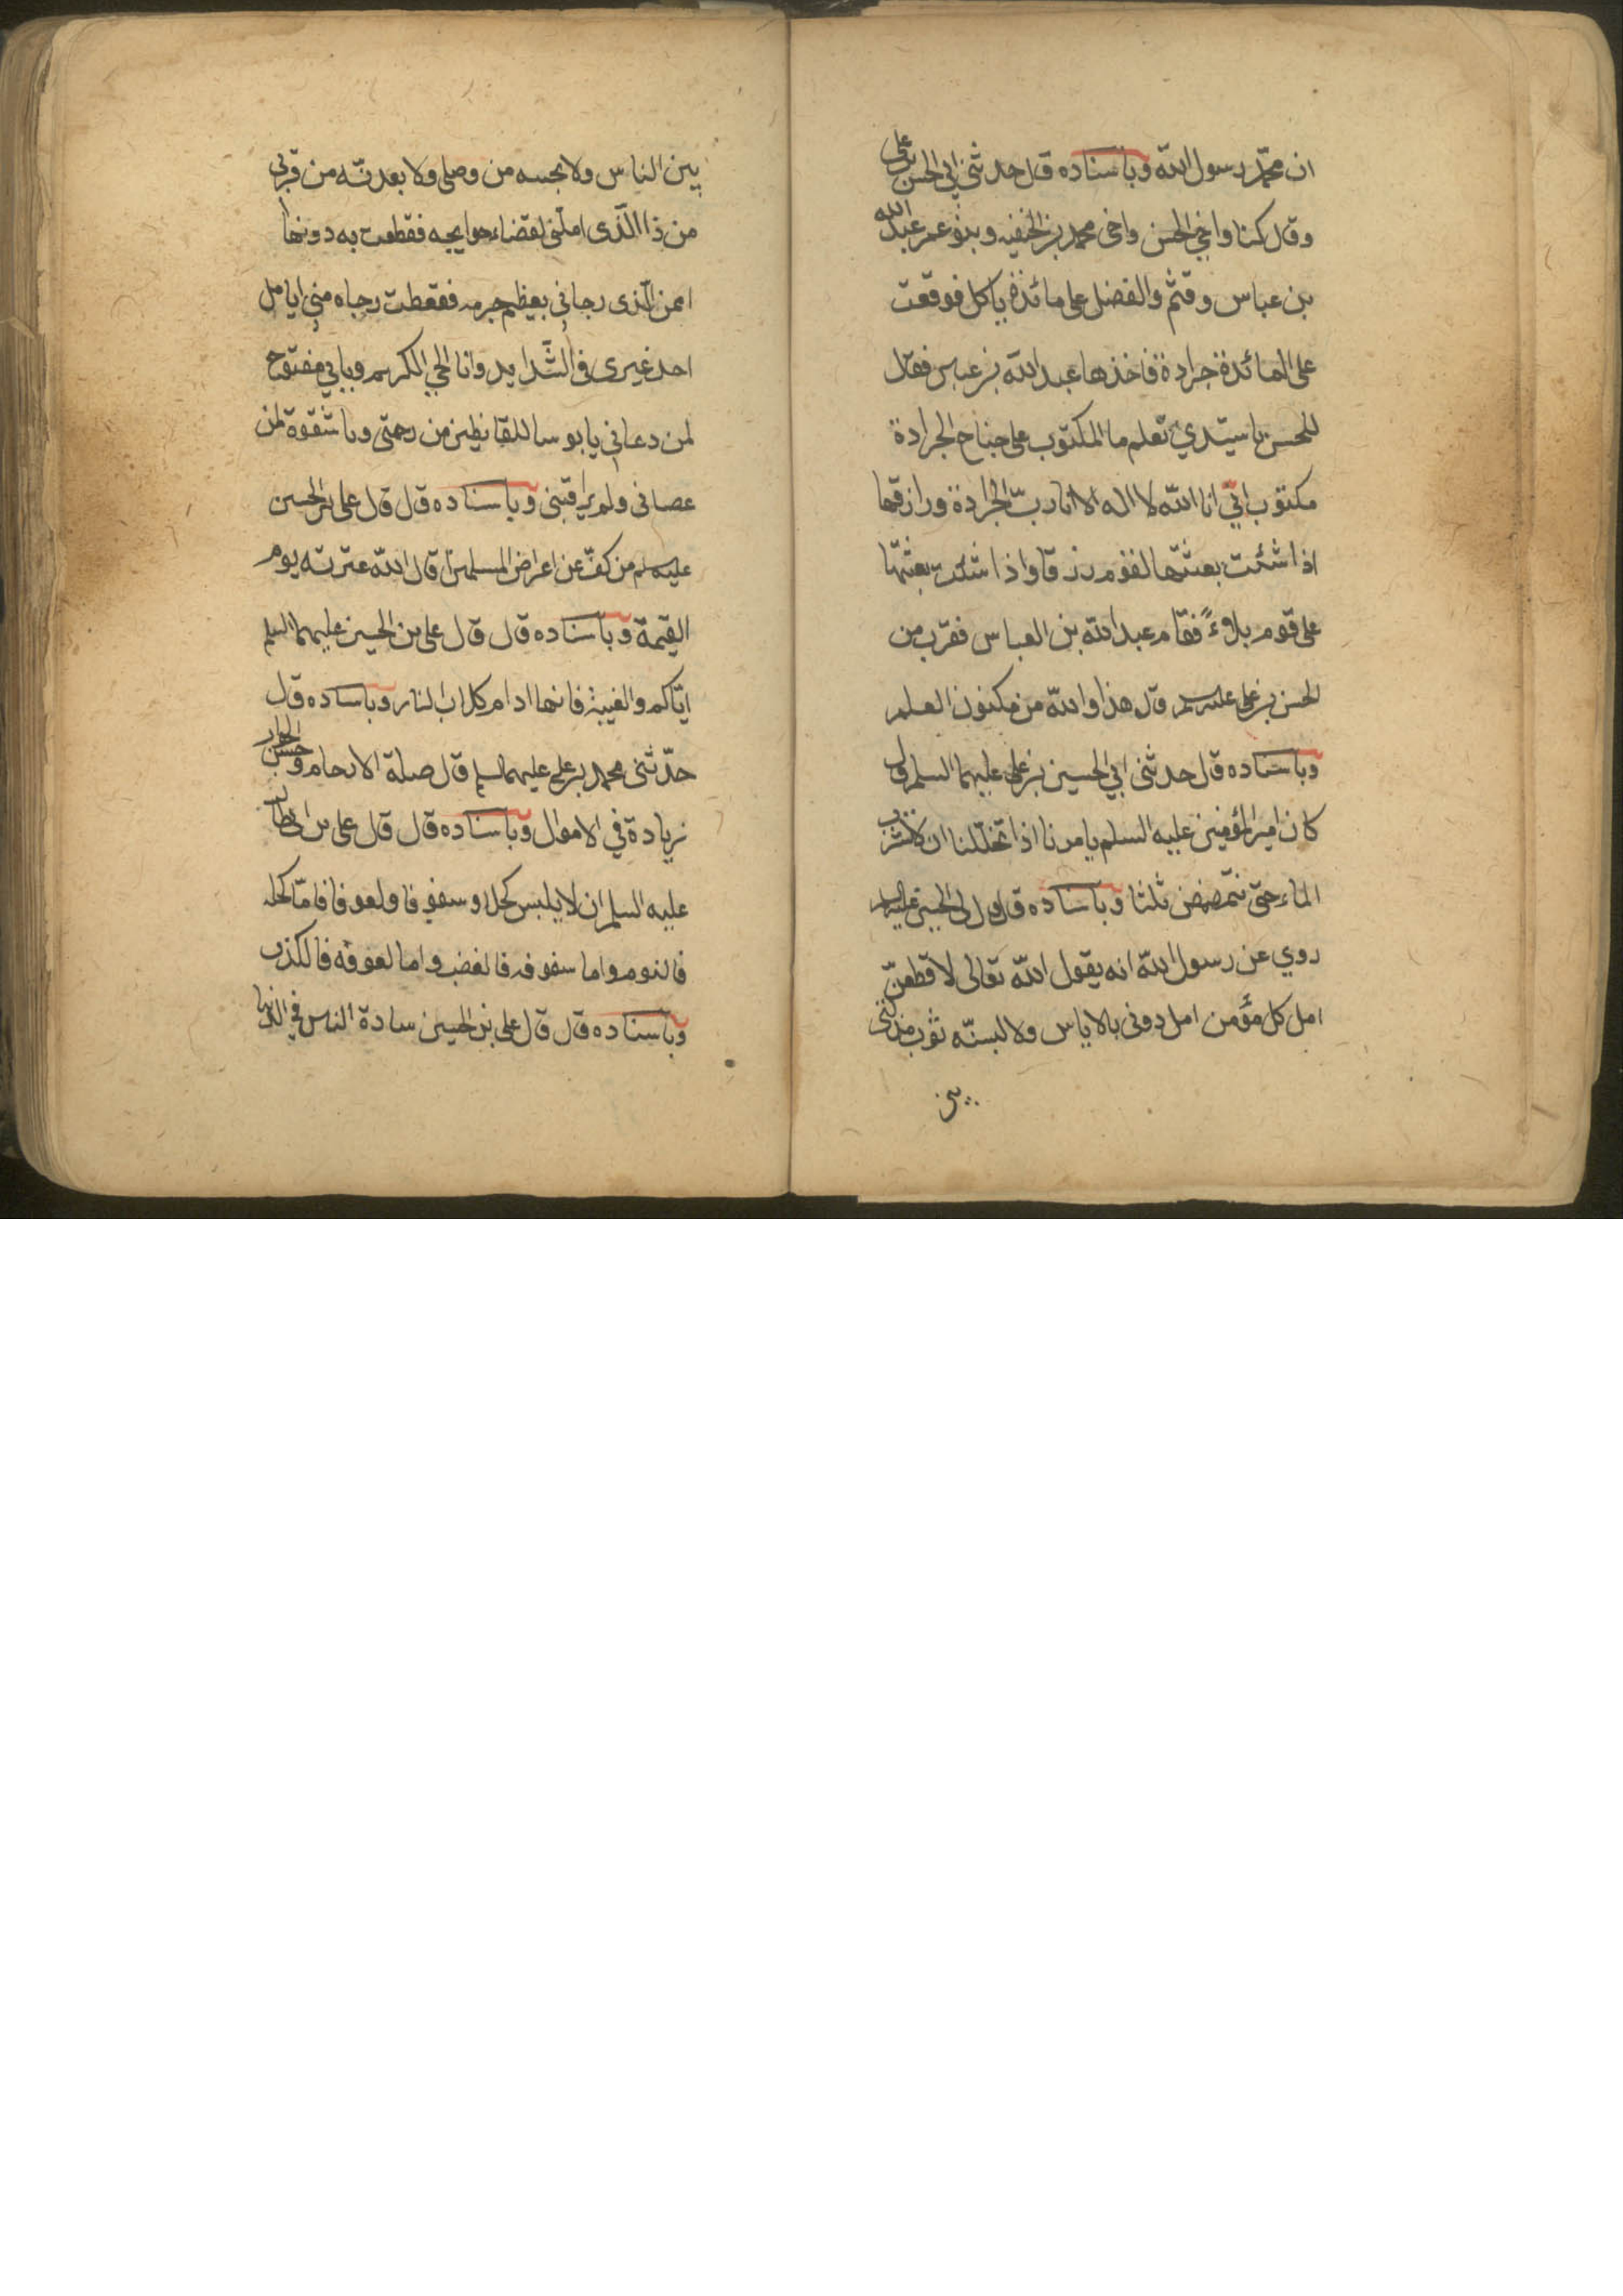 ان محمّد رسول الله وباسناده قال حدثني ابي الحسن بن علي
وقال كنا واخي الحسن واخي محمد بن الحنفيه وبنو عمر عبد الله
بن عباس وقثم والفضل على مائدة ياكل فوقعت
على المائدة جرادة فاخذها عبد الله بن عباس فقال
للحسن يا سيّدي تعلم ما المكتوب على جناح الجرادة
مكتوب انّي انا الله لا اله الا انا ربّ الجرادة ورازقها
اذا شئت بعثتها لقوم رزقا واذا شئت بعثتها
على قوم بلاءً فقام عبد الله بن العباس فقرب من
الحسن بن علي عليه سلم قال هذا والله من مكنون العلم
وباسناده قال حدثنى ابي الحسين بن علي عليهما السلم قال
كان امير المؤمنين عليه السلم يامرنا اذا تخلّلنا ان لا نشرب
الماء حتى نتمضمض ثلثا وباسناده قال
روي عن رسول الله انه يقول الله تعالى لاقطعنّ
امل كل مؤمن امل دوني بالاياس ولالبسنّه ثوب مذلة
بين
بين الناس ولا من وصلى ولابعدنّه من قربي
من ذا الّذى املني لقضاء حوايجه فقطعت به دونها
امن الّذى رجاني بعظيم جرمه فقطعت رجاه مني ايامل
احد غيرى فى الشّدايد وانا الحي الكريم وبابي مفتوح
لمن دعاني يا بوسا للقانطين من رحمتى ويا شقوة لمن
عصانى ولم يراقبنى وباسناده قال قال على بن الحسين
عليه سلم من كفّ عن اعراض المسلمين اقال الله عثرته يوم
القيمة وباسناده قال قال على بن الحسين عليهما السلم
ايّاكم والغيبة فانها ادام كلاب النار وباسناده قال
حدّثنى محمد بن على عليهما السلم قال صلة الارحام وحسن الجوار
زيادة في الاموال وباسناده قال قال على بن ابى طالب
عليه السلم ان لابليس كحلا وسفوفا ولعوقا فامّا كحله
فالنوم واما سفوفه فالغضب واما لعوقه فالكذب
وباسناده قال قال على بن الحسين سادة الناس في الدنيا